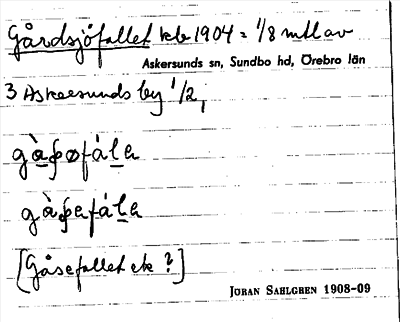 Gårdsjöfallet kb 1904 = 1/8 mtl av
Askersunds sn, Sundbo hd, Örebro län
3 Askersunds by 1/2,
[Gåsefallet ek ?]
JÖRAN SAHLGREN 1908-09